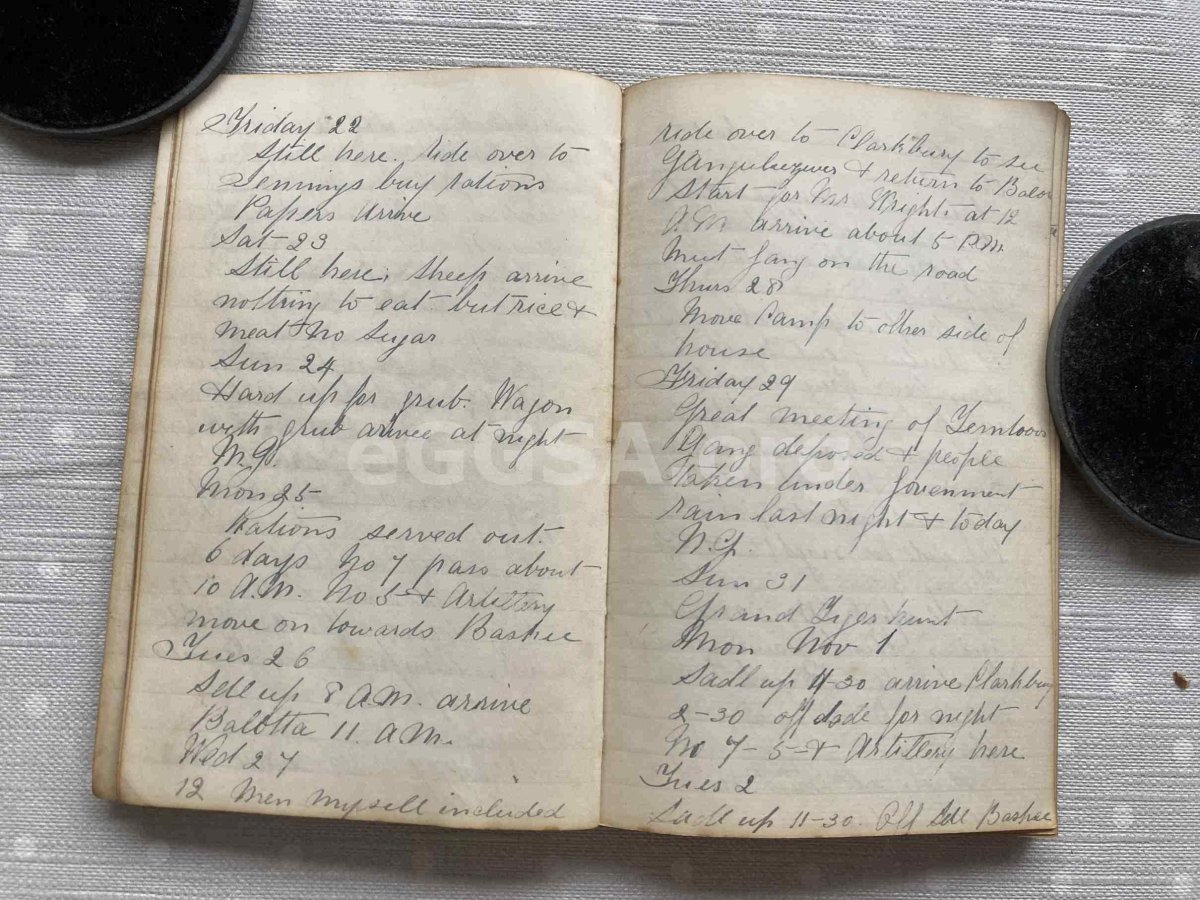 Friday 22
Still here. ride over to
Jennings buy rations
Papers arive
Sat 23
Still here, Sheep arrive
nothing to eat but rice &
meat No Sugar
Sun 24
Hard up for grub. Wagon
with grub arivee at night
N.G.
Mon 25
Rations served out.
6 days No 7 pass about
10 A.M. No 5 & Artillery
move on towards Bashee
Tues 26
Sdl up 8 A.M. arrive
Balotta 11. A.M.
Wed 27
12 Men myself included
ride over to Clarkbury to see
& return to
Start for Mr Wrights at 12
A.M. arrive about 5 P.M.
Meet Gang on the road
Thurs 28
Move Camp to other side of
house
Friday 29
Great meeting of
Gang deposed & people
taken under Govenment
rain last night & today
N.G.
Sun 31
Grand Tiger hunt
Mon Nov 1
Sadl up 11-30 arrive Clarkbury
2-30 off for night
No 7-5-& Artillery here
Tues 2
Sadl up 11-30. Off Sdl Bashee
eGGSA.org